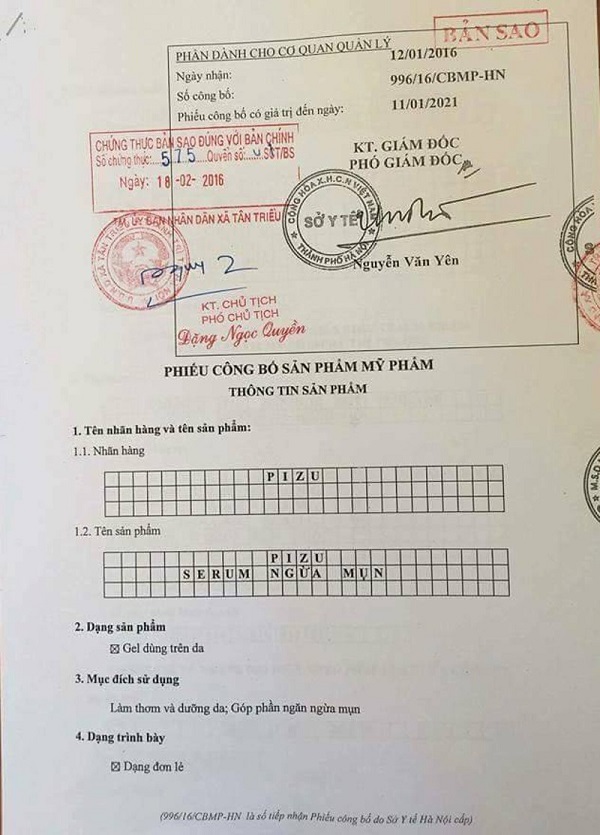 BẢN SAO
PHẦN DÀNH CHO CƠ QUAN QUẢN LÝ
Ngày nhận: 12/01/2016
Số công bố: 996/16/CBMP-HN
Phiếu công bố có giá trị đến ngày: 11/01/2021
CHỨNG THỰC BẢN SAO ĐÚNG VỚI BẢN CHÍNH
Số chứng thực: 575 Quyển số: SCT/BS
Ngày: 18-02- 2016
TM. ỦY BAN NHÂN DÂN XÃ TÂN TRIỀU
KT. GIÁM ĐỐC
PHÓ GIÁM ĐỐC
CỘNG HÒA X.H.C.N VIỆT NAM
SỞ Y TẾ
THÀNH PHỐ HÀ NỘI
Nguyễn Văn Yên
KT. CHỦ TỊCH
PHÓ CHỦ TỊCH
Đặng Ngọc Quyền
PHIẾU CÔNG BỐ SẢN PHẨM MỸ PHẨM
THÔNG TIN SẢN PHẨM
1. Tên nhãn hàng và tên sản phẩm:
1.1. Nhãn hàng
PIZU
1.2. Tên sản phẩm
PIZU
SERUM NGỪA MỤN
2. Dạng sản phẩm
☒ Gel dùng trên da
3. Mục đích sử dụng
Làm thơm và dưỡng da; Góp phần ngăn ngừa mụn
4. Dạng trình bày
☒ Dạng đơn lẻ
(996/16/CBMP-HN là số tiếp nhận Phiếu công bố do Sở Y tế Hà Nội cấp)